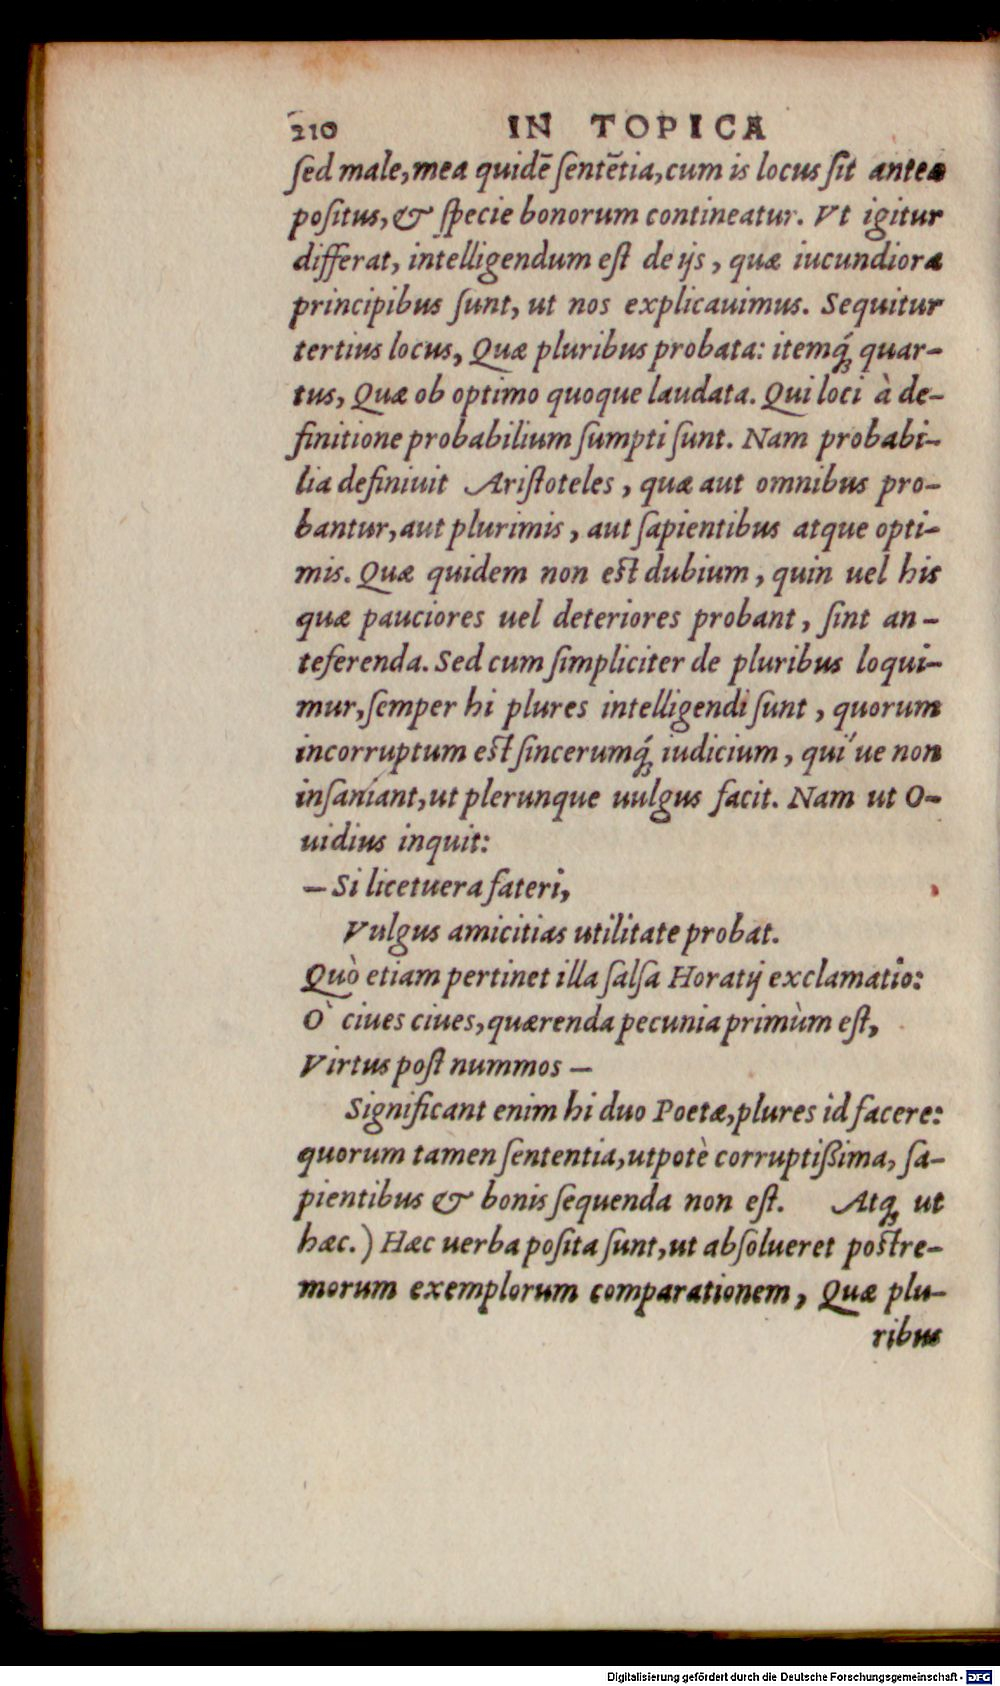 210 IN TOPICA
sed male, mea quidẽ sentẽtia, cum is locus sit antea
positus, & specie bonorum contineatur. Vt igitur
differat, intelligendum est de ijs, quæ iucundiora
principibus sunt, ut nos explicauimus. Sequitur
tertius locus, Quæ pluribus probata: itemq́; quar-
tus, Quæ ob optimo quoque laudata. Qui loci à de-
finitione probabilium sumpti sunt. Nam probabi-
lia definiuit Aristoteles, quæ aut omnibus pro-
bantur, aut plurimis, aut sapientibus atque opti-
mis. Quæ quidem non est dubium, quin uel his
quæ pauciores uel deteriores probant, sint an-
teferenda. Sed cum simpliciter de pluribus loqui-
mur, semper hi plures intelligendi sunt, quorum
incorruptum est sincerumq́; iudicium, qui'ue non
insaniant, ut plerunque uulgus facit. Nam ut O-
uidius inquit:
— Si licet uera fateri,
Vulgus amicitias utilitate probat.
Quò etiam pertinet illa salsa Horatij exclamatio:
O` ciues ciues, quærenda pecunia primùm est,
Virtus post nummos —
Significant enim hi duo Poetæ, plures id facere:
quorum tamen sententia, utpotè corruptißima, sa-
pientibus & bonis sequenda non est. Atq; ut
hæc.) Hæc uerba posita sunt, ut absolueret postre-
morum exemplorum comparationem, Quæ plu-
ribus
Digitalisierung gefördert durch die Deutsche Forschungsgemeinschaft - DFG